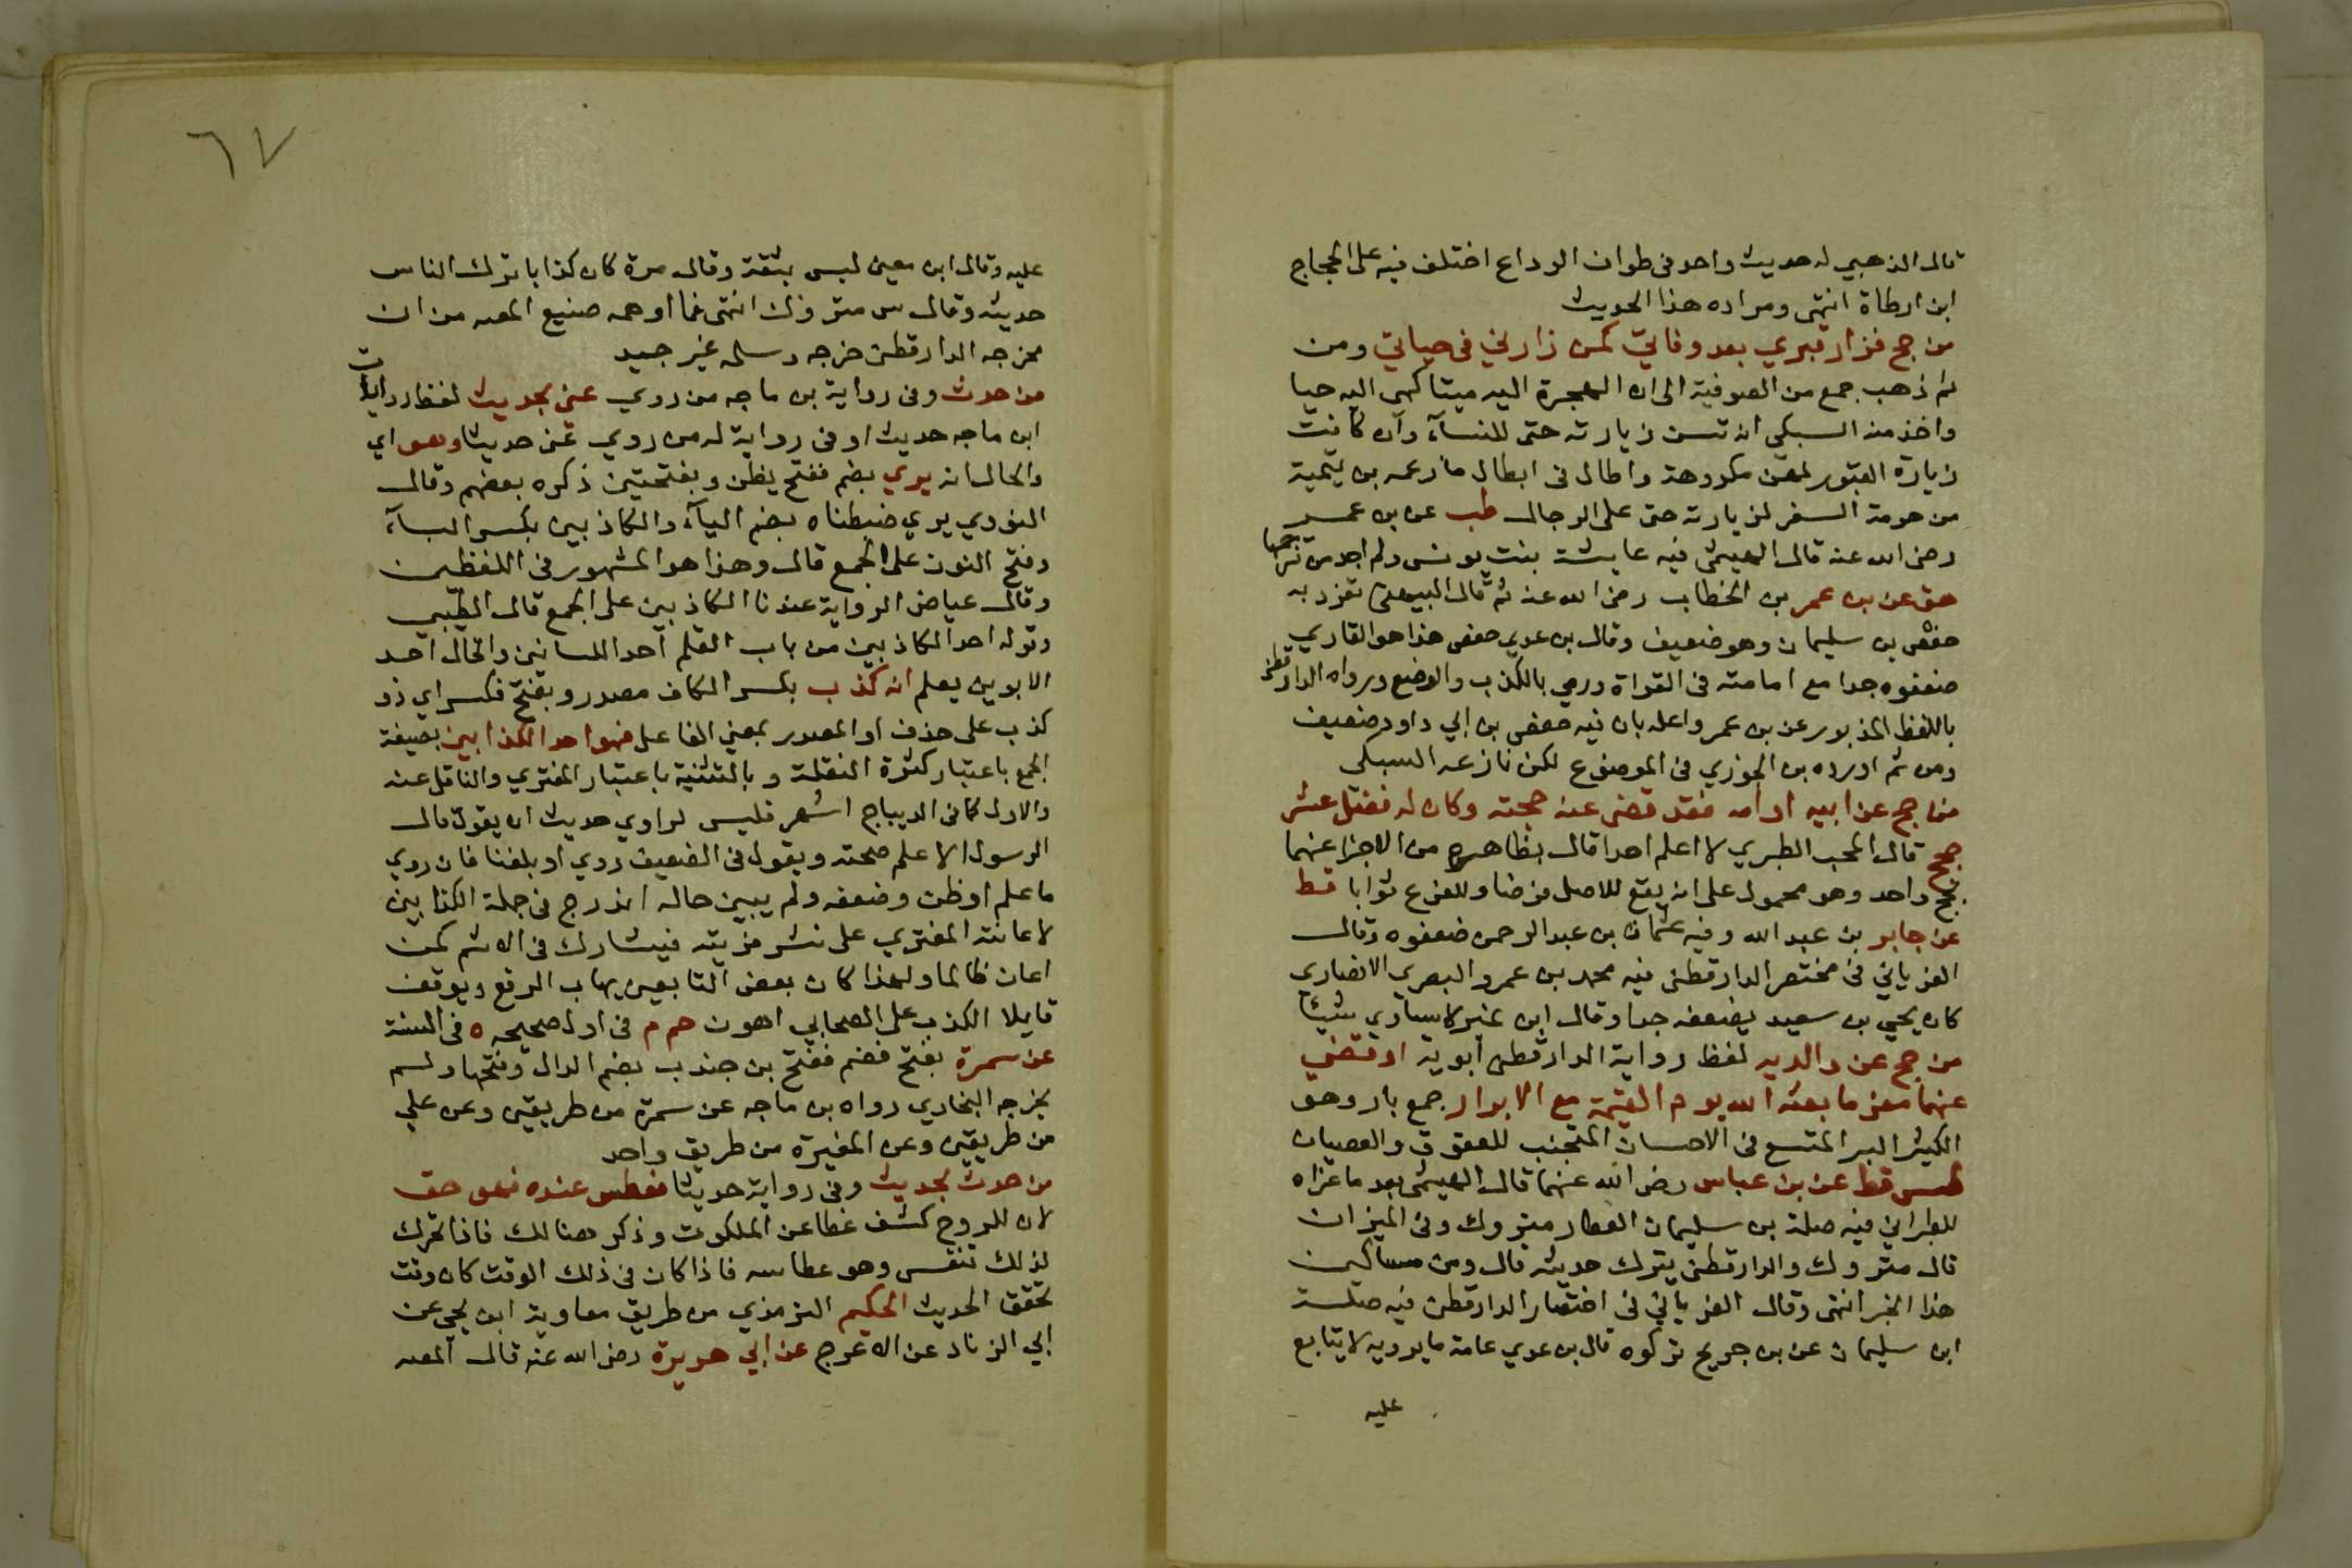 قال الذهبي له حديث واحد فى طواف الوداع اختلف فيه على الحجاج
ابن ارطاة انتهى ومراده هذا الحديث
من حج فزار قبري بعد وفاتي كمن زارني فى حياتي ومن
ثم ذهب جمع من الصوفية الى ان الهجرة اليه ميتا كهى اليه حيا
واخذ منه السبكى انه تسن زيارته حتى للنسآء وان كانت
زيارة القبور لهن مكروهة واطال فى ابطال ما زعمه بن تيمية
من حرمة السفر لزيارته حتى على الرجال طب عن بن عمر
رضى الله عنه قال الهيثمى فيه عايشة بنت يونس ولم اجد من ترجمها
هق عن بن عمر بن الخطاب رضى الله عنه ثم قال البيهقى تفرد به
حفص بن سليمان وهو ضعيف وقال بن عدي حفص هذا هو القاري
ضعفوه جدا مع امامته فى القراة ورمي بالكذب والوضع ورواه الدارقطنى
باللفظ المذبور عن بن عمر واعله بان فيه حفص بن ابي داود ضعيف
ومن ثم اورده بن الجوزي فى الموضوع لكن نازعه السبكى
من حج عن ابيه او امه فقد قضى عنه حجته وكان له فضل عشر
حجج قال المحب الطبري لا اعلم احدا قال بظاهره من الاجزا عنهما
بحج واحد وهو محمول على انه يقع للاصل فرضا وللفرع ثوابا قط
عن جابر بن عبد الله وفيه عثمان بن عبد الرحمن ضعفوه وقال
الغرياني فى مختصر الدارقطنى فيه محمد بن عمرو البصري الانصاري
كان يحيي بن سعيد يضعفه جدا وقال ابن نمير لا يساوي شيئا
من حج عن والديه لفظ رواية الدارقطى ابويه او قضى
عنهما مغرما بعثه الله يوم القيمة مع الابرار جمع بار وهو
الكثير البر المتسع فى الاحسان المتجنب للعقوق والعصيان
طس قط عن بن عباس رضى الله عنهما قال الهيثمى بعد ما عزاه
للطبراني فيه صلة بن سليمان العطار متروك وفى الميزان
قال متروك والدارقطنى يترك حديثه قال ومن مناكيره
هذا الخبر انتهى وقال الغرياني فى اختصار الدارقطنى فيه صلة
ابن سليمان عن بن جريح تركوه قال بن عدي عامة ما يرويه لا يتابع
عليه
٦٧
عليه وقال ابن معين ليس بثقة وقال مرة كان كذابا ترك الناس
حديثه وقال س متروك انتهى فما اوهمه صنيع المص من ان
مخرجه الدارقطنى خرجه وسلمه غير جيد
من حدث وفى رواية بن ماجه من روي عني بحديث لفظ روايات
ابن ماجه حديث او فى رواية له من روي عني حديثا وهو اي
والحال انه يري بضم ففتح يظن وبفتحتين ذكره بعضهم وقال
النووي يري ضبطناه بضم اليآء والكاذبين بكسر البآء
وفتح النون على الجمع قال وهذا هو المشهور فى اللفظين
وقال عياض الرواية عندنا الكاذبين على الجمع قال الطيبي
وقوله احد الكاذبين من باب القلم احد اللسانين والخال احد
الابوين يعلم انه كذب بكسر الكاف مصدر وبفتح فكسر اي ذو
كذب على حذف او المصدر بمعني الفاعل فهو احد الكذابين بصيغة
الجمع باعتبار كثرة النقلة وبالتثنية باعتبار المفتري والناقل عنه
والاول كما فى الديباج اشهر فليس لراوي حديث ان يقول قال
الرسول الا علم صحته ويقول فى الضعيف روي او بلغنا فان روي
ما علم او ظن وضعفه ولم يبين حاله اندرج فى جملة الكذابين
لاعانته المفتري على نشر فريته فيشارك فى الاثم كمن
اعان ظالما ولهذا كان بعض التابعين يهاب الرفع ويوقف
قايلا الكذب على الصحابي اهون حم م فى اول صحيحه ه فى السنة
عن سمرة بفتح فضم ففتح بن جندب بضم الدال وفتحها ولم
يخرجه البخاري رواه بن ماجه عن سمرة من طريقين وعن علي
من طريقين وعن المغيرة من طريق واحد
من حدث بحديث وفى رواية حديثا فعطس عنده فهو حق
لان للروح كشف غطا عن الملكوت وذكر هنالك فاذا تحرك
لذلك تنفس وهو عطاسه فاذا كان فى ذلك الوقت كان وقت
تحقق الحديث الحكيم الترمذي من طريق معاوية ابن يحي عن
ابي الزناد عن الاعرج عن ابي هريرة رضى الله عنه قال المص